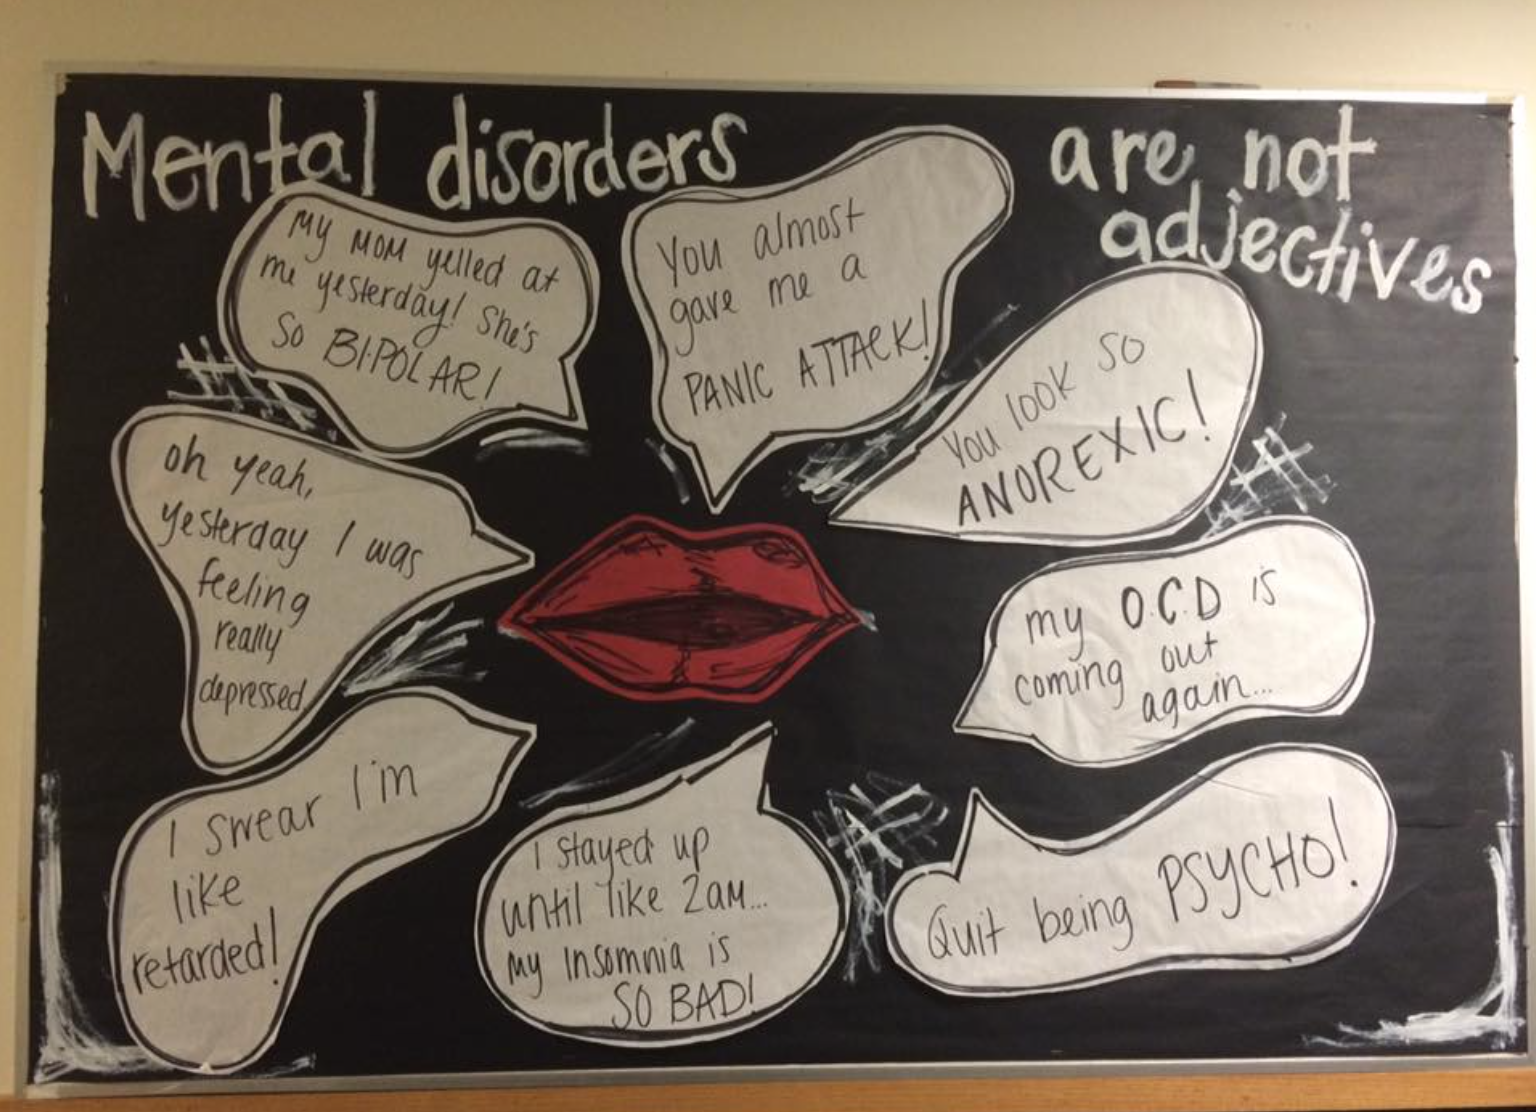 Mental disorders are not
adjectives
My MOM yelled at
me yesterday! She's
So BIPOLAR!
You almost
gave me a
PANIC ATTACK!
You look SO
ANOREXIC!
oh yeah,
yesterday I was
feeling
really
depressed
my O.C.D is
coming out
again...
I swear I'm
like
retarded!
I stayed up
until like 2am...
my Insomnia is
SO BAD!
Quit being PSYCHO!